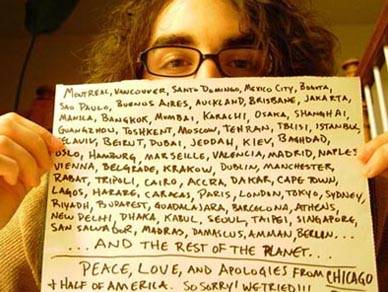 MONTREAL, VANCOUVER, SANTO DOMINGO, MEXICO CITY, BOGOTA,
SAO PAULO, BUENOS AIRES, AUCKLAND, BRISBANE, JAKARTA,
MANILA, BANGKOK, MUMBAI, KARACHI, OSAKA, SHANGHAI,
GUANGZHOU, TOSHKENT, MOSCOW, TEHRAN, TBLISI, ISTANBUL,
TELAVIV, BEIRUT, DUBAI, JEDDAH, KIEV, BAGHDAD,
OSLO, HAMBURG, MARSEILLE, VALENCIA, MADRID, NAPLES
VIENNA, BELGRADE, KRAKOW, DUBLIN, MANCHESTER,
RABAT, TRIPOLI, CAIRO, ACCRA, DAKAR, CAPE TOWN,
LAGOS, HARARE, CARACAS, PARIS, LONDON, TOKYO, SYDNEY,
RIYADH, BUDAPEST, GUADALAJARA, BARCELONA, ATHENS,
NEW DELHI, DHAKA, KABUL, SEOUL, TAIPEI, SINGAPORE,
SAN SALVADOR, MADRAS, DAMASCUS, AMMAN, BERLIN...
...AND THE REST OF THE PLANET...
PEACE, LOVE, AND APOLOGIES FROM CHICAGO
+ HALF OF AMERICA. SO SORRY! WE TRIED!!!